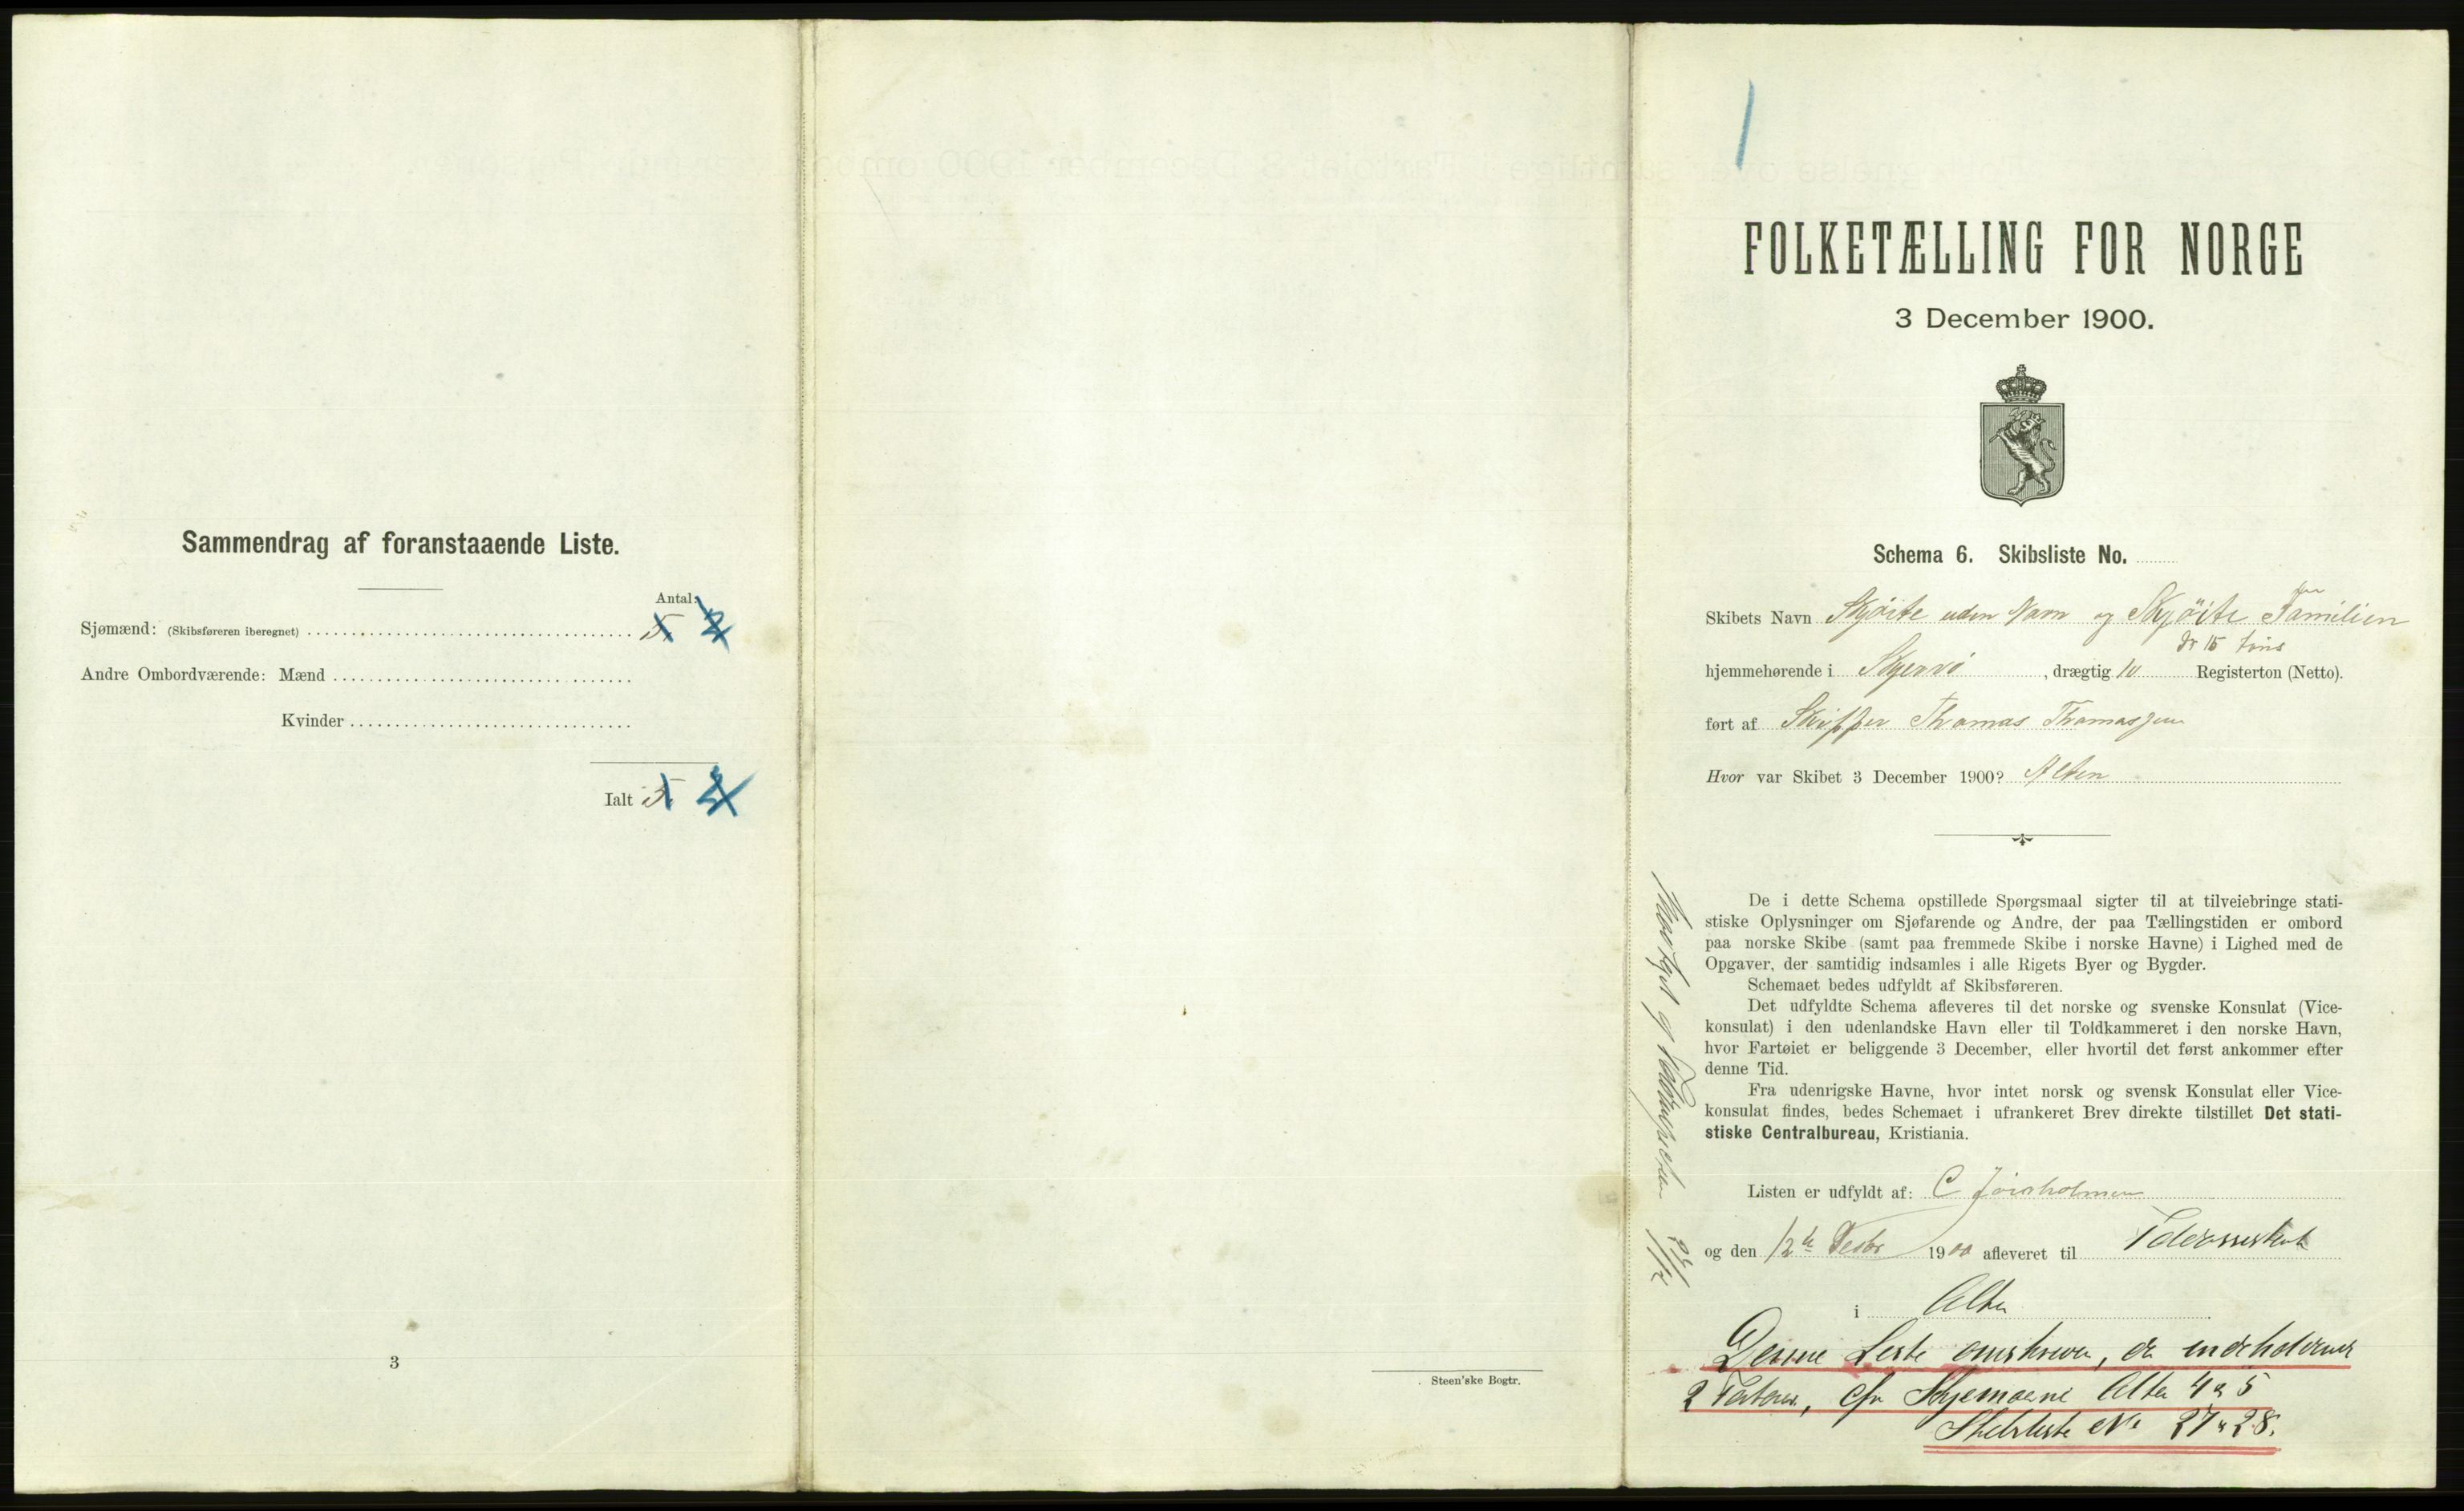 Sammendrag af foranstaaende Liste.
Antal:
Sjømænd: (Skibsføreren iberegnet) 5 2
Andre Ombordværende: Mænd
Kvinder
Ialt 5
3
Steen'ske Bogtr.
FOLKETÆLLING FOR NORGE
3 December 1900.
Schema 6. Skibsliste No.
Skibets Navn Skjöite uden Navn og Skjöite Familien
dr 15 tons
hjemmehørende i Skjervö, drægtig 10 Registerton (Netto).
ført af Skipper Thomas Thomassen
Hvor var Skibet 3 December 1900? Alten
De i dette Schema opstillede Spørgsmaal sigter til at tilveiebringe stati-
stiske Oplysninger om Sjøfarende og Andre, der paa Tællingstiden er ombord
paa norske Skibe (samt paa fremmede Skibe i norske Havne) i Lighed med de
Opgaver, der samtidig indsamles i alle Rigets Byer og Bygder.
Schemaet bedes udfyldt af Skibsføreren.
Det udfyldte Schema afleveres til det norske og svenske Konsulat (Vice-
konsulat) i den udenlandske Havn eller til Toldkammeret i den norske Havn,
hvor Fartøiet er beliggende 3 December, eller hvortil det først ankommer efter
denne Tid.
Fra udenrigske Havne, hvor intet norsk og svensk Konsulat eller Vice-
konsulat findes, bedes Schemaet i ufrankeret Brev direkte tilstillet Det stati-
stiske Centralbureau, Kristiania.
Listen er udfyldt af: C
og den 12te Decbr 1900 afleveret til
i Alten
Denne Liste omskreven, da indeholdende
2 Fartøier, cfr Skjemaerne Alten 4 & 5
Skibsliste No 27 & 28.